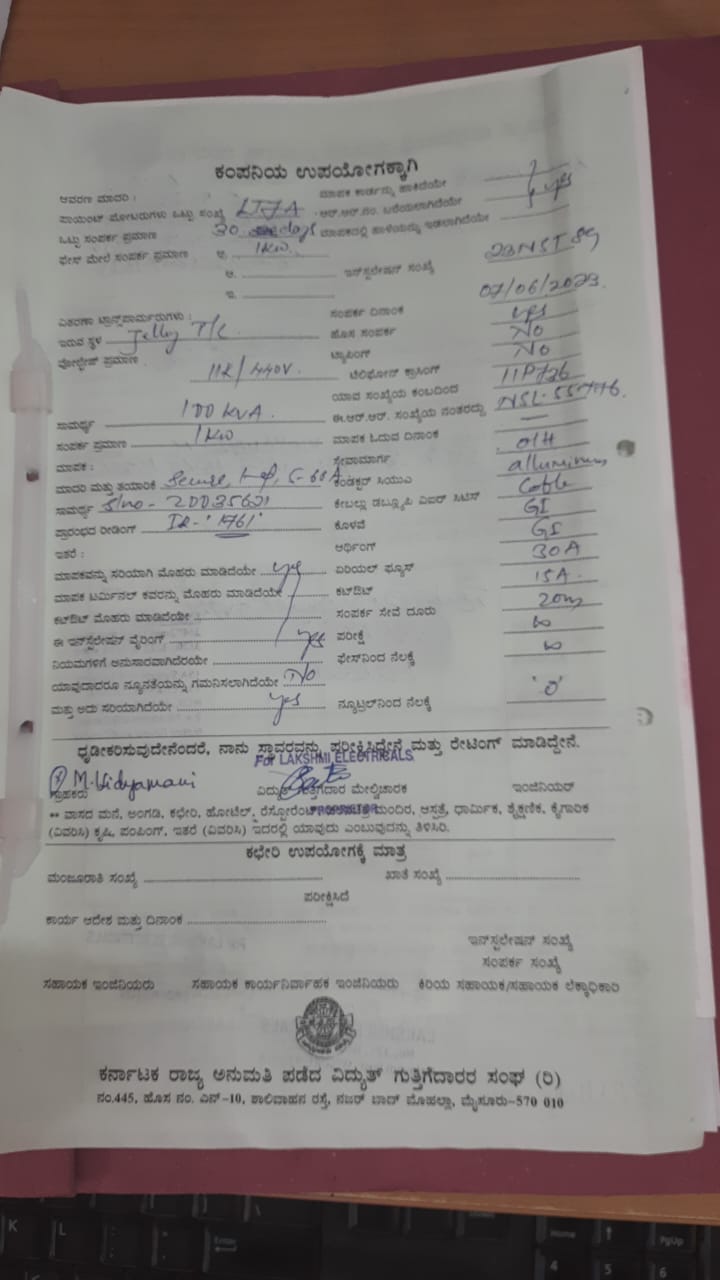 ಕಂಪನಿಯ ಉಪಯೋಗಕ್ಕಾಗಿ
ಆವರಣ ಮಾದರಿ : ಮಾಪಕ ಕಾರ್ಡನ್ನು ಹಾಕಿದೆಯೇ
ಪಾಯಿಂಟ್ ಮೋಟರುಗಳು ಒಟ್ಟು ಸಂಖ್ಯೆ ಆರ್.ಆರ್.ನಂ. ಬರೆಯಲಾಗಿದೆಯೇ yes
ಒಟ್ಟು ಸಂಪರ್ಕ ಪ್ರಮಾಣ 30 days ಮಾಪಕದಲ್ಲಿ ಹಾಳೆಯನ್ನು ಇಡಲಾಗಿದೆಯೇ
ಫೇಸ್ ಮೇಲೆ ಸಂಪರ್ಕ ಪ್ರಮಾಣ ಅ. 1KW
ಆ. ಇನ್‌ಸ್ಟಲೇಷನ್ ಸಂಖ್ಯೆ 23NST89
ಇ.
ವಿತರಣಾ ಟ್ರಾನ್ಸ್‌ಫಾರ್ಮರುಗಳು : ಸಂಪರ್ಕ ದಿನಾಂಕ 07/06/2023.
ಇರುವ ಸ್ಥಳ Jelly T/C ಹೊಸ ಸಂಪರ್ಕ yes
ವೋಲ್ಟೇಜ್ ಪ್ರಮಾಣ 11K/440V. ಟ್ಯಾಪಿಂಗ್ No
ಟೆಲಿಫೋನ್ ಕ್ರಾಸಿಂಗ್ No
ಸಾಮರ್ಥ್ಯ 100 KVA. ಯಾವ ಸಂಖ್ಯೆಯ ಕಂಬದಿಂದ
ಸಂಪರ್ಕ ಪ್ರಮಾಣ 1KW ಈ.ಆರ್.ಆರ್. ಸಂಖ್ಯೆಯ ನಂತರದ್ದು
ಮಾಪಕ : ಮಾಪಕ ಓದುವ ದಿನಾಂಕ —
ಸೇವಾಮಾರ್ಗ O/H
ಮಾದರಿ ಮತ್ತು ತಯಾರಿಕೆ Secure, 5-60A ಕಂಡಕ್ಟರ್ ಸಿಯುಎ alluminum
ಸಾಮರ್ಥ್ಯ S/no - 20035621 ಕೇಬಲ್ಲು ಡಬ್ಲ್ಯೂಪಿ ಎಐರ್ ಸಿಟಿಸ್ Cable
ಪ್ರಾರಂಭದ ರೀಡಿಂಗ್ IR - '1761' ಕೊಳವೆ GI
ಇತರೆ : ಅರ್ಥಿಂಗ್ GI
ಮಾಪಕವನ್ನು ಸರಿಯಾಗಿ ಮೊಹರು ಮಾಡಿದೆಯೇ yes ಏರಿಯಲ್ ಫ್ಯೂಸ್ 30A
ಮಾಪಕ ಟರ್ಮಿನಲ್ ಕವರನ್ನು ಮೊಹರು ಮಾಡಿದೆಯೇ ಕಟ್‌ಔಟ್ 15A.
ಕಟ್‌ಔಟ್ ಮೊಹರು ಮಾಡಿದೆಯೇ ಸಂಪರ್ಕ ಸೇವೆ ದೂರು 20m
ಈ ಇನ್‌ಸ್ಟಲೇಷನ್ ವೈರಿಂಗ್ ಪರೀಕ್ಷೆ ∞
ನಿಯಮಗಳಿಗೆ ಅನುಸಾರವಾಗಿದೆರಯೇ yes ಫೇಸ್‌ನಿಂದ ನೆಲಕ್ಕೆ ∞
ಯಾವುದಾದರೂ ನ್ಯೂನತೆಯನ್ನು ಗಮನಿಸಲಾಗಿದೆಯೇ No
ಮತ್ತು ಅದು ಸರಿಯಾಗಿದೆಯೇ yes ನ್ಯೂಟ್ರಲ್‌ನಿಂದ ನೆಲಕ್ಕೆ '0'
ಧೃಡೀಕರಿಸುವುದೇನೆಂದರೆ, ನಾನು ಸ್ಥಾವರವನ್ನು ಪರೀಕ್ಷಿಸಿದ್ದೇನೆ ಮತ್ತು ರೇಟಿಂಗ್ ಮಾಡಿದ್ದೇನೆ.
For LAKSHMI ELECTRICALS
M. Vidyamani
ಗ್ರಾಹಕರು ವಿದ್ಯುತ್ ಗುತ್ತಿಗೆದಾರ ಮೇಲ್ವಿಚಾರಕ ಇಂಜಿನಿಯರ್
PROPRIETOR
** ವಾಸದ ಮನೆ, ಅಂಗಡಿ, ಕಛೇರಿ, ಹೋಟೆಲ್, ರೆಸ್ಟೋರೆಂಟ್, ಮಂದಿರ, ಆಸ್ಪತ್ರೆ, ಧಾರ್ಮಿಕ, ಶೈಕ್ಷಣಿಕ, ಕೈಗಾರಿಕ
(ವಿವರಿಸಿ) ಕೃಷಿ, ಪಂಪಿಂಗ್, ಇತರೆ (ವಿವರಿಸಿ) ಇದರಲ್ಲಿ ಯಾವುದು ಎಂಬುವುದನ್ನು ತಿಳಿಸಿರಿ.
ಕಛೇರಿ ಉಪಯೋಗಕ್ಕೆ ಮಾತ್ರ
ಮಂಜೂರಾತಿ ಸಂಖ್ಯೆ ಖಾತೆ ಸಂಖ್ಯೆ
ಪರೀಕ್ಷಿಸಿದೆ
ಕಾರ್ಯ ಆದೇಶ ಮತ್ತು ದಿನಾಂಕ
ಇನ್‌ಸ್ಟಲೇಷನ್ ಸಂಖ್ಯೆ
ಸಂಪರ್ಕ ಸಂಖ್ಯೆ
ಸಹಾಯಕ ಇಂಜಿನಿಯರು ಸಹಾಯಕ ಕಾರ್ಯನಿರ್ವಾಹಕ ಇಂಜಿನಿಯರು ಕಿರಿಯ ಸಹಾಯಕ/ಸಹಾಯಕ ಲೆಕ್ಕಾಧಿಕಾರಿ
ಕರ್ನಾಟಕ ರಾಜ್ಯ ಅನುಮತಿ ಪಡೆದ ವಿದ್ಯುತ್ ಗುತ್ತಿಗೆದಾರರ ಸಂಘ (ರಿ)
ನಂ.445, ಹೊಸ ನಂ. ಎನ್-10, ಶಾಲಿವಾಹನ ರಸ್ತೆ, ನಜರ್ ಬಾದ್ ಮೊಹಲ್ಲಾ, ಮೈಸೂರು-570 010
K L Enter Home ↑ PgUp
4 5 6